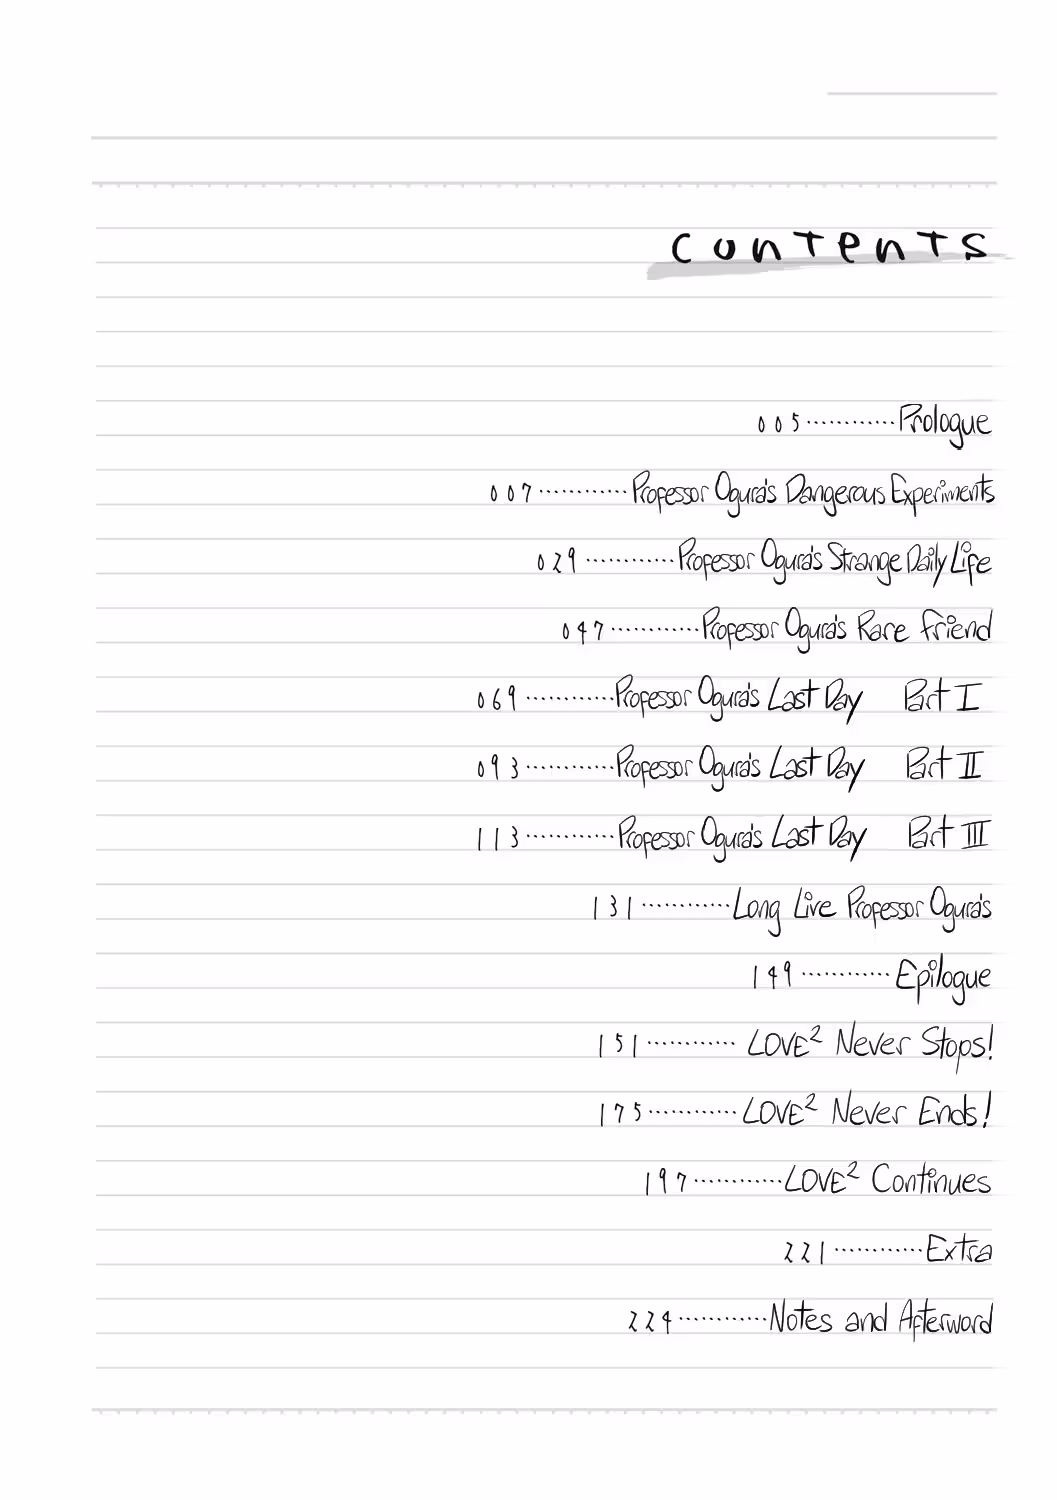 contents
005············Prologue
007············Professor Ogura's Dangerous Experiments
029············Professor Ogura's Strange Daily Life
047············Professor Ogura's Rare friend
069············Professor Ogura's Last Day Part I
093············Professor Ogura's Last Day Part II
113············Professor Ogura's Last Day Part III
131············Long Live Professor Ogura's
149············Epilogue
151············LOVE² Never Stops!
175············LOVE² Never Ends!
197············LOVE² Continues
221············Extra
224············Notes and Afterword